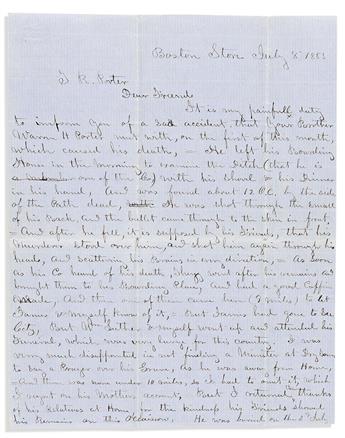 Boston Store July 8th 1853
T. R. Porter
Dear Friends
It is my painfull duty
to inform you of a sad accident, that your Brother
Warren H Porter met with, on the first of this month,
which caused his deaths, – He left his Boarding
House in the Morning to examine the Ditch (that he is
one of the Co) with his shovel & his Dinner
in his hand, And was found about 12 O.C. by the side
of the Path dead, He was shot through the small
of his Back, and the bullet came through to the skin in front,
– And after he fell, it is supposed by his Friends, that his
Murderers stood over him, and shot him again through his
heads, and scattering his Brains in every direction, – As soon
as his Co heard of his death, they went after his remains and
brought them to his Boarding Place, And had a good Coffin
Made, And then one of them came here (7 miles) to let
James & myself know of it, – But James had gone to
City, But Mr Luther & myself went up and attended his
Funeral, which was very large, for this country, I was
very much disappointed in not finding a Minister at
to say a Prayer over his Grave, As he was away from Home,
– And there was none under 10 miles, so I had to omit it, which
I regret on his Mothers account, But I returned thanks
of his Relations at Home for the kindness his Friends showed
his Remains on this Occasion, He was buried on the 2d July